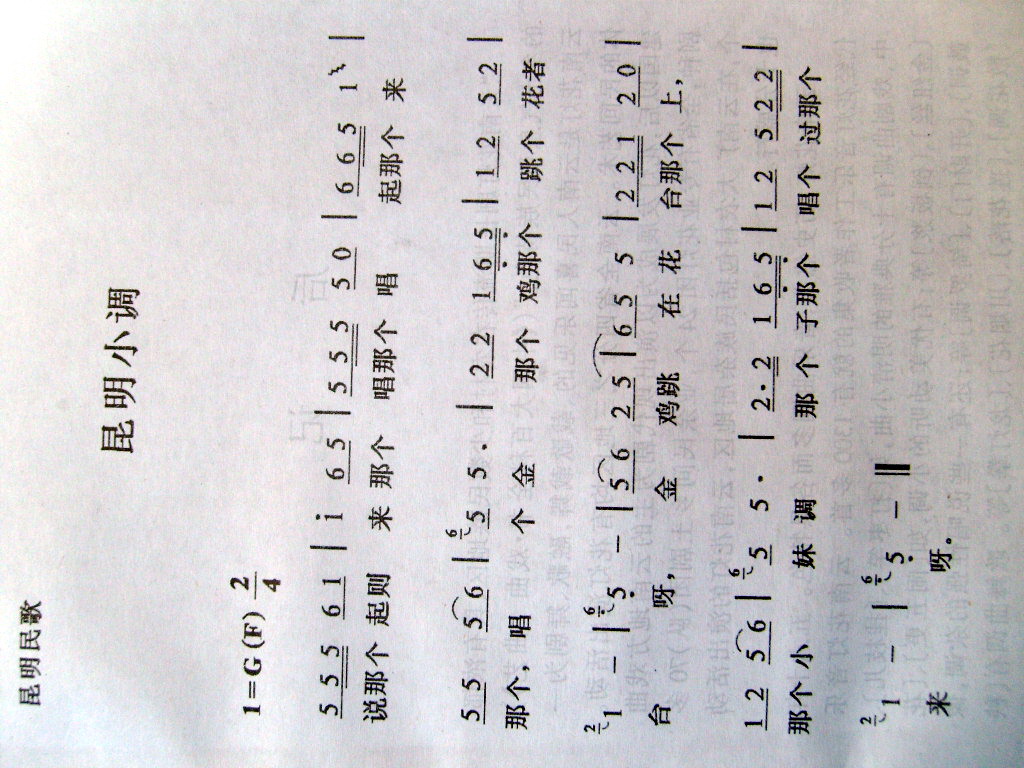 昆明民歌
昆明小调
1=G(F) 2/4
5 5 5 6 1 | i 6 5 | 5 5 5 5 0 | 6 6 5 1 |
说那个 起则 来 那个 唱那个 唱 起那个 来
5 5 5 6 | 6 5 5 · | 2 2 1 6 5 | 1 2 5 2 |
那个，唱 个 金 那个 鸡那个 跳个 花者
2 1 – | 6 5 – | 5 6 2 5 | 6 5 5 | 2 2 1 2 0 |
台 呀， 金 鸡跳 在 花 台那个 上，
1 2 5 6 | 6 5 5 · | 2 · 2 1 6 5 | 1 2 5 2 2 |
那个 小 妹 调 那个 子那个 唱个 过那个
2 1 – | 6 5 – ‖
来 呀。